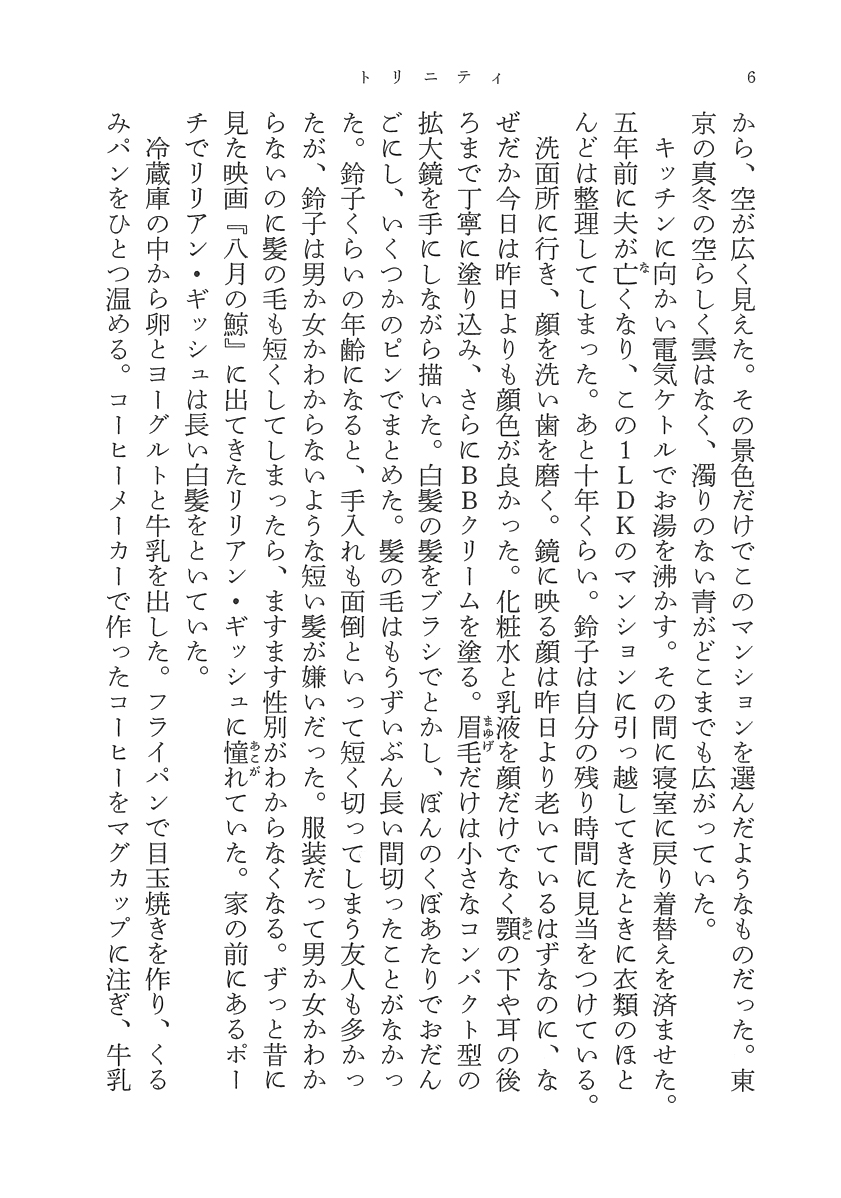 トリニティ
6
から、空が広く見えた。その景色だけでこのマンションを選んだようなものだった。東
京の真冬の空らしく雲はなく、濁りのない青がどこまでも広がっていた。
キッチンに向かい電気ケトルでお湯を沸かす。その間に寝室に戻り着替えを済ませた。
五年前に夫が亡くなり、この1LDKのマンションに引っ越してきたときに衣類のほと
んどは整理してしまった。あと十年くらい。鈴子は自分の残り時間に見当をつけている。
洗面所に行き、顔を洗い歯を磨く。鏡に映る顔は昨日より老いているはずなのに、な
ぜだか今日は昨日よりも顔色が良かった。化粧水と乳液を顔だけでなく顎の下や耳の後
ろまで丁寧に塗り込み、さらにBBクリームを塗る。眉毛だけは小さなコンパクト型の
拡大鏡を手にしながら描いた。白髪の髪をブラシでとかし、ぼんのくぼあたりでおだん
ごにし、いくつかのピンでまとめた。髪の毛はもうずいぶん長い間切ったことがなかっ
た。鈴子くらいの年齢になると、手入れも面倒といって短く切ってしまう友人も多かっ
たが、鈴子は男か女かわからないような短い髪が嫌いだった。服装だって男か女かわか
らないのに髪の毛も短くしてしまったら、ますます性別がわからなくなる。ずっと昔に
見た映画『八月の鯨』に出てきたリリアン・ギッシュに憧れていた。家の前にあるポー
チでリリアン・ギッシュは長い白髪をといていた。
冷蔵庫の中から卵とヨーグルトと牛乳を出した。フライパンで目玉焼きを作り、くる
みパンをひとつ温める。コーヒーメーカーで作ったコーヒーをマグカップに注ぎ、牛乳